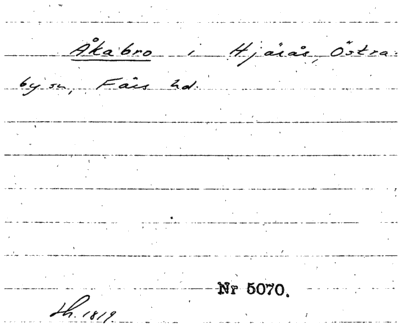 Åkabro i Hjäsås, Östra-
by sn, Färs hd.
Nr 5070.
Sh. 1819.